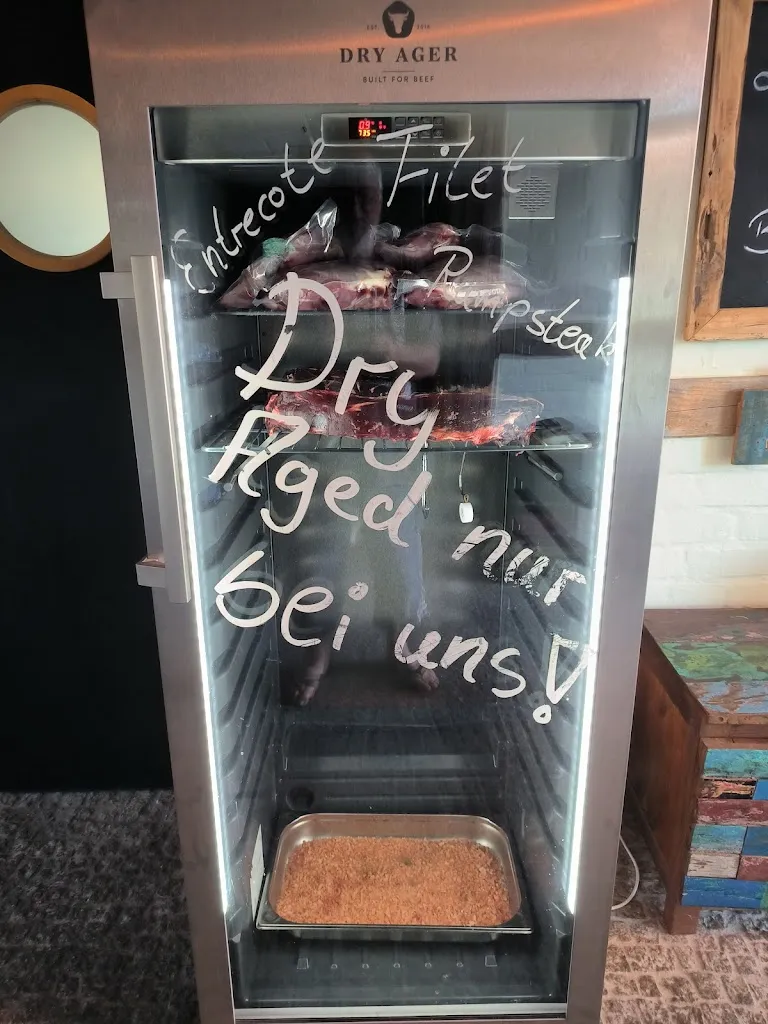 EST. 2016
DRY AGER
BUILT FOR BEEF
Entrecote
Filet
Rumpsteak
Dry
Aged nur
bei uns!